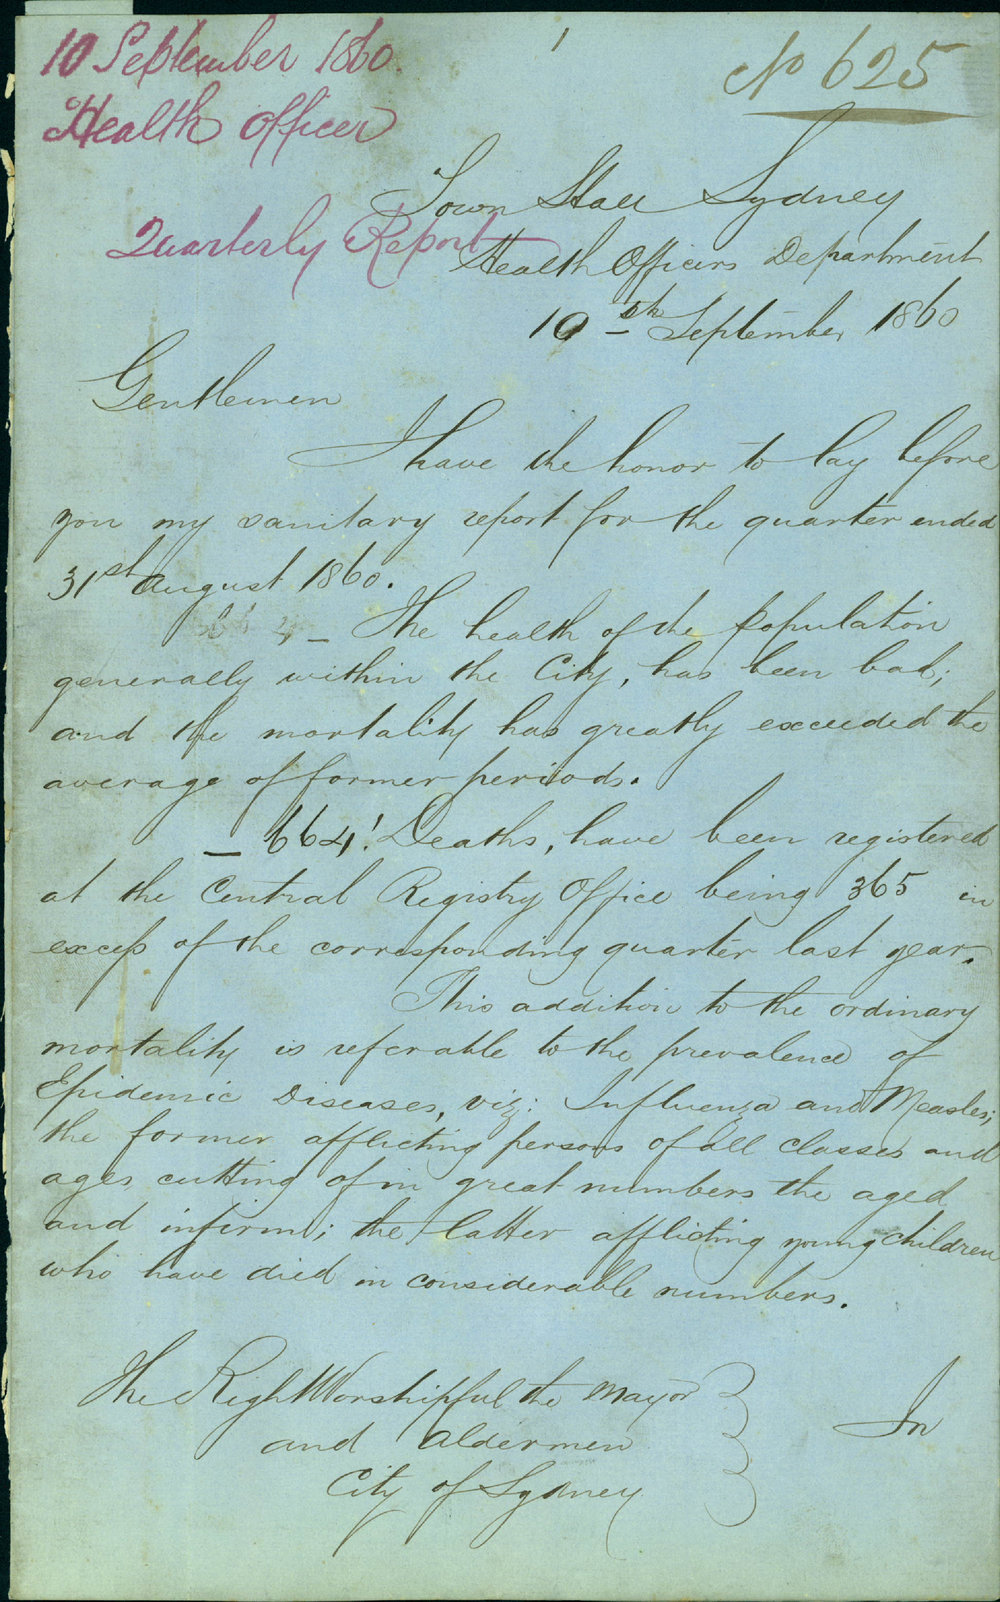 10 September 1860.
Health Officer
Quarterly Report
No 625
Town Hall Sydney
Health Officers Department
10th September 1860
Gentlemen
I have the honor to lay before
you my sanitary report for the quarter ended
31st August 1860.
The health of the population
generally within the City, has been bad;
and the mortality has greatly exceeded the
average of former periods.
— 664! Deaths, have been registered
at the Central Registry Office being 365 in
excess of the corresponding quarter last year.
This addition to the ordinary
mortality is referable to the prevalence of
Epidemic Diseases, viz: Influenza and Measles;
the former afflicting persons of all classes and
ages cutting of in great numbers the aged
and infirm; the latter afflicting young children
who have died in considerable numbers.
The Right Worshipful the Mayor
and Aldermen
City of Sydney
In